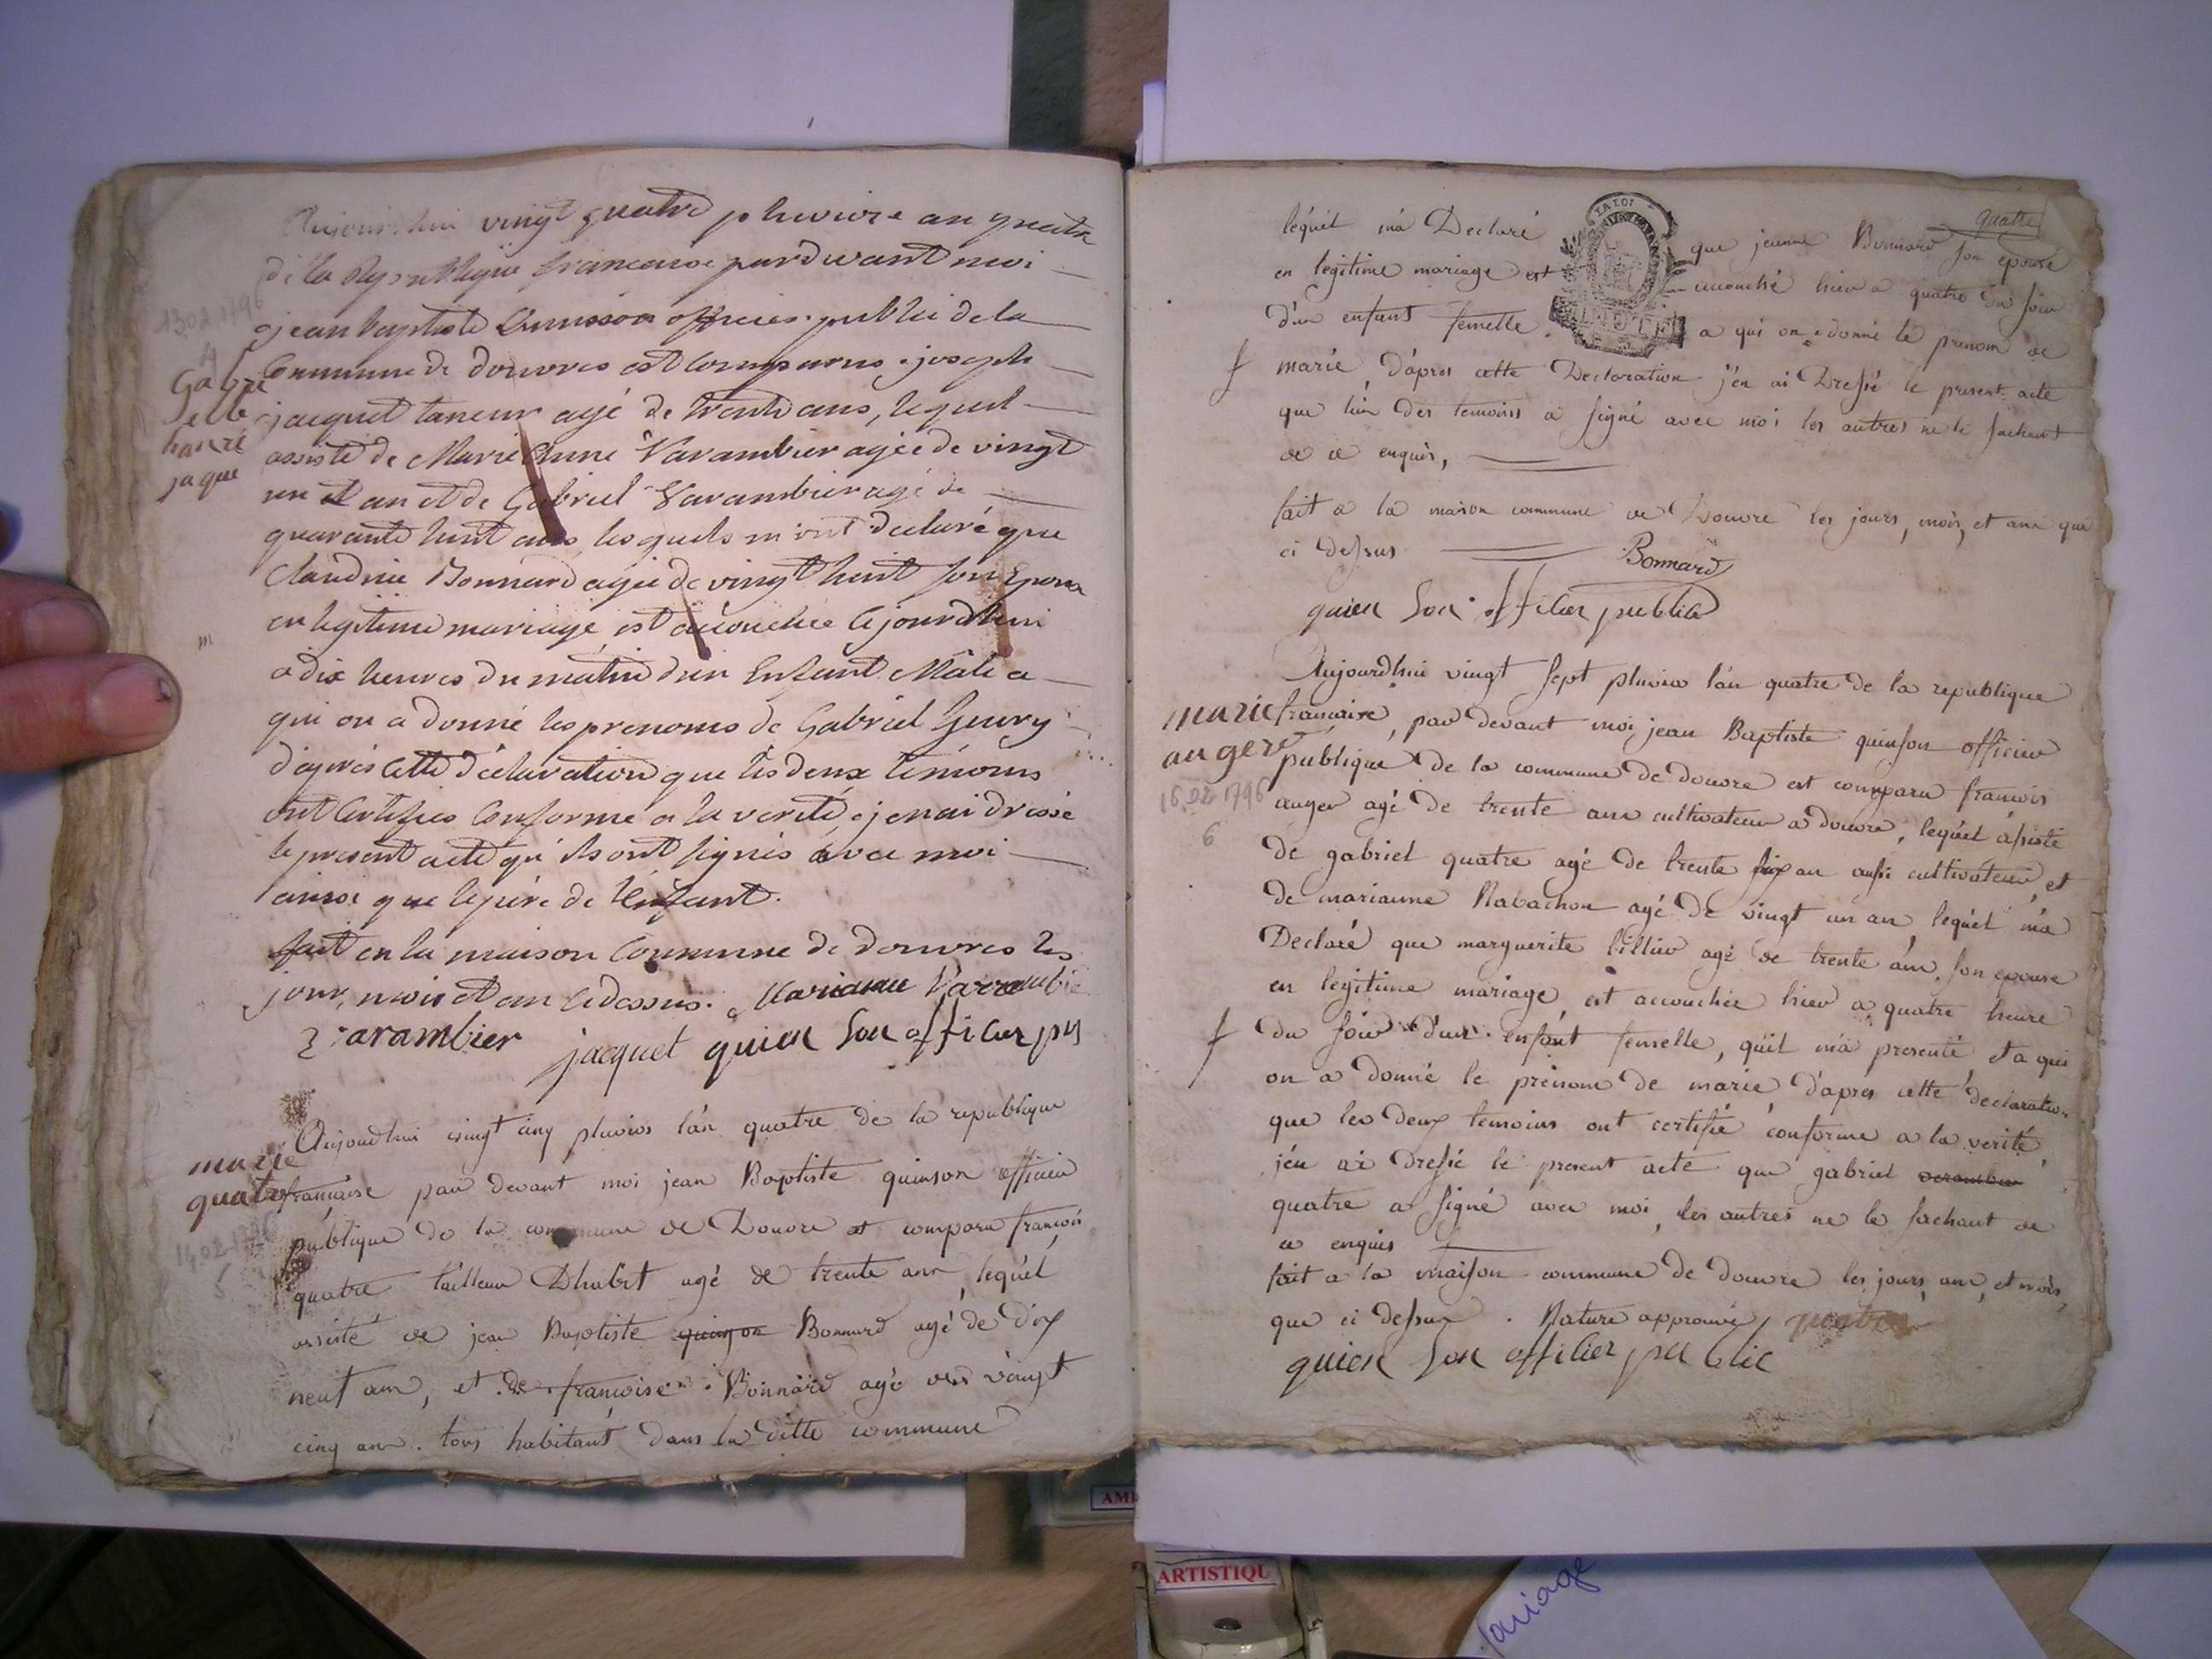 Aujourdhui vingt quatre pluviose an quatre
de la Republique francaise pardevant moi
jean baptiste Quinson officier public de la
Commune de douvres est Comparus joseph
jacquet taneur agé de trente ans, lequel
assisté de Marie Anne Varambier agée de vingt
un an et de Gabriel Varambier agé de
quarante huit ans, lesquels m'ont declaré que
Claudine Bonnard agée de vingt huit son Epouse
en legitime mariage, est acouchée cejourdhui
a dix heures du matin d'un Enfant Mâle a
qui on a donné les prenoms de Gabriel henry
d'après cette déclaration que les deux témoins
ont Certifiés Conforme a la verité, jenai dressé
le present acte qu'ils ont signés avec moi
ainsi que le père de l'enfant.
fait en la maison Commune de douvres les
jour, mois et an cidessus. Marianne Varambie
Varambier jacquet quien son officier pu
13 02 1796
4
Gabri
elle
hanri
jaque
m
Aujourdhui vingt cinq pluvios l'an quatre de la republique
française par devant moi jean Baptiste quinson officier
publique de la commune de Douvre est comparu françois
quatre tailleur Dhabit agé de trente ans, lequel
assisté de jean Baptiste quinson Bonnard agé de dix
neuf ans, et de françoise Bonnard agé de vingt
cinq ans. tous habitant dans la ditte commune
marie
quatre
14 02 1796
5
quatre
lequel m'a Declaré que jeanne Bonnard son epouse
en legitime mariage est accouché hier a quatre du soir
d'un enfant femelle a qui on a donné le prenom de
marie, d'apres cette Declaration j'en ai Dressé le present acte
que l'un des temoins a signé avec moi les autres ne le sachant
de ce enquis,
fait a la maison commune de Douvre les jours, mois, et ans que
ci dessus Bonnard
quien son officier public
LA LOI
Aujourdhui vingt sept pluvios l'an quatre de la republique
francaise, par devant moi jean Baptiste quinson officier
publique de la commune de douvre est comparu francois
auger agé de trente ans cultivateur a douvre, lequel assisté
de gabriel quatre agé de trente six an aussi cultivateur, et
de marianne Rabachon agé de vingt un an lequel m'a
Declaré que marguerite agé de trente ans son epouse
en legitime mariage est accouchée hier a quatre heure
du soir d'un enfant femelle, qu'il m'a presenté, et a qui
on a donné le prenom de marie, d'apres cette declaration
que les deux temoins ont certifié conforme a la verité,
j'en ai Dressé le present acte que gabriel varambier
quatre a signé avec moi, les autres ne le sachant de
ce enquis
fait a la maison commune de douvre les jours, ans, et mois,
que ci dessus. Rature approuvé quatre
quien son officier public
marie
auger
16 02 1796
6
AMI
ARTISTIQU
Mariage